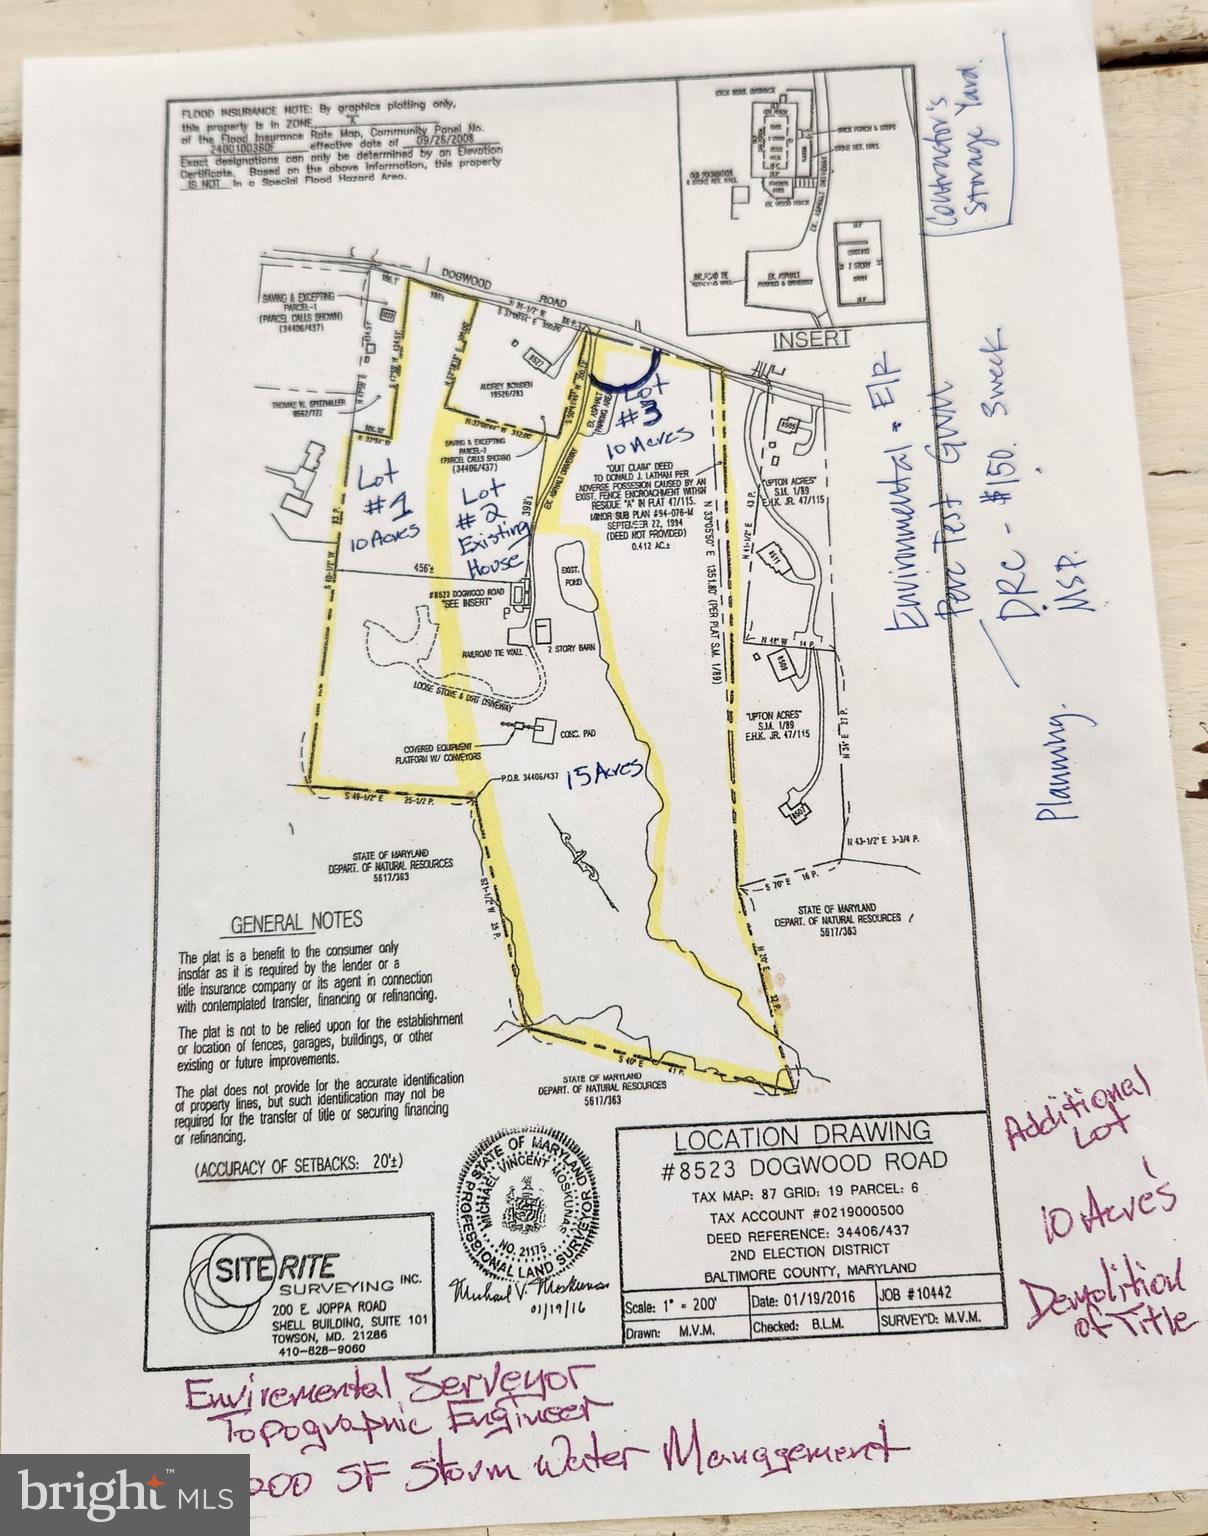 FLOOD INSURANCE NOTE: By graphics plotting only,
this property is in ZONE "X"
of the Flood Insurance Rate Map, Community Panel No.
2400100360F effective date of 09/26/2008
Exact designations can only be determined by an Elevation
Certificate. Based on the above information, this property
IS NOT in a Special Flood Hazard Area.
EX. WOOD PORCH
EX. ASPHALT DRIVEWAY
EX. ASPHALT
PARKING & DRIVEWAY
2 STORY
INSERT
Contractor's
Storage Yard.
DOGWOOD ROAD
SAVING & EXCEPTING
PARCEL-1
(PARCEL CALLS SHOWN)
(34406/437)
THOMAS W. SPITZMILLER
9562/722
#8527
AUDREY BOWDEN
19526/283
SAVING & EXCEPTING
PARCEL-2
(PARCEL CALLS SHOWN)
(34406/437)
EX. ASPHALT DRIVEWAY
EX. ASPHALT
PARKING AREA
Lot
#1
10 Acres
Lot
#2
Existing
House
Lot
#3
10 Acres
"QUIT CLAIM" DEED
TO DONALD J. LATHAM PER
ADVERSE POSSESION CAUSED BY AN
EXIST. FENCE ENCROACHMENT WITHIN
RESIDUE "A" IN PLAT 47/115.
MINOR SUB PLAN #94-076-M
SEPTEMBER 22, 1994
(DEED NOT PROVIDED)
0.412 AC.±
N 33°05'50" E 1351.80' (PER PLAT S.M. 1/89)
#8505
"UPTON ACRES"
S.M. 1/89
E.H.K. JR. 47/115
#8511
N 41-1/2° E 43 P.
N 48° W 14 P.
#8509
"UPTON ACRES"
S.M. 1/89
E.H.K. JR. 47/115
N 34° E 27 P.
#8507
N 43-1/2° E 3-3/4 P.
S 70° E 16 P.
456'±
398'±
EXIST.
POND
#8523 DOGWOOD ROAD
"SEE INSERT"
RAILROAD TIE WALL
2 STORY BARN
LOOSE STONE & DIRT DRIVEWAY
COVERED EQUIPMENT
PLATFORM W/ CONVEYORS
CONC. PAD
P.O.B. 34406/437
15 Acres
S 49-1/2° E 25-1/2 P.
STATE OF MARYLAND
DEPART. OF NATURAL RESOURCES
5617/363
STATE OF MARYLAND
DEPART. OF NATURAL RESOURCES
5617/363
N 20° E 32 P.
S 40° E 41 P.
STATE OF MARYLAND
DEPART. OF NATURAL RESOURCES
5617/363
Environmental = EIR
Perc Test GWM
DRC - $150. 3 week
MSP.
Planning.
GENERAL NOTES
The plat is a benefit to the consumer only
insofar as it is required by the lender or a
title insurance company or its agent in connection
with contemplated transfer, financing or refinancing.
The plat is not to be relied upon for the establishment
or location of fences, garages, buildings, or other
existing or future improvements.
The plat does not provide for the accurate identification
of property lines, but such identification may not be
required for the transfer of title or securing financing
or refinancing.
(ACCURACY OF SETBACKS: 20'±)
SITE RITE
SURVEYING INC.
200 E. JOPPA ROAD
SHELL BUILDING, SUITE 101
TOWSON, MD. 21286
410-828-9060
STATE OF MARYLAND
MICHAEL VINCENT MOSKUNAS
NO. 21175
PROFESSIONAL LAND SURVEYOR
Michael V. Moskunas
01/19/16
LOCATION DRAWING
#8523 DOGWOOD ROAD
TAX MAP: 87 GRID: 19 PARCEL: 6
TAX ACCOUNT #0219000500
DEED REFERENCE: 34406/437
2ND ELECTION DISTRICT
BALTIMORE COUNTY, MARYLAND
Scale: 1" = 200' Date: 01/19/2016 JOB #10442
Drawn: M.V.M. Checked: B.L.M. SURVEY'D: M.V.M.
Additional
Lot
10 Acres
Demolition
of Title
Enviremental Serveyor
Topographic Engineer
000 SF Storm Water Management
bright™ MLS